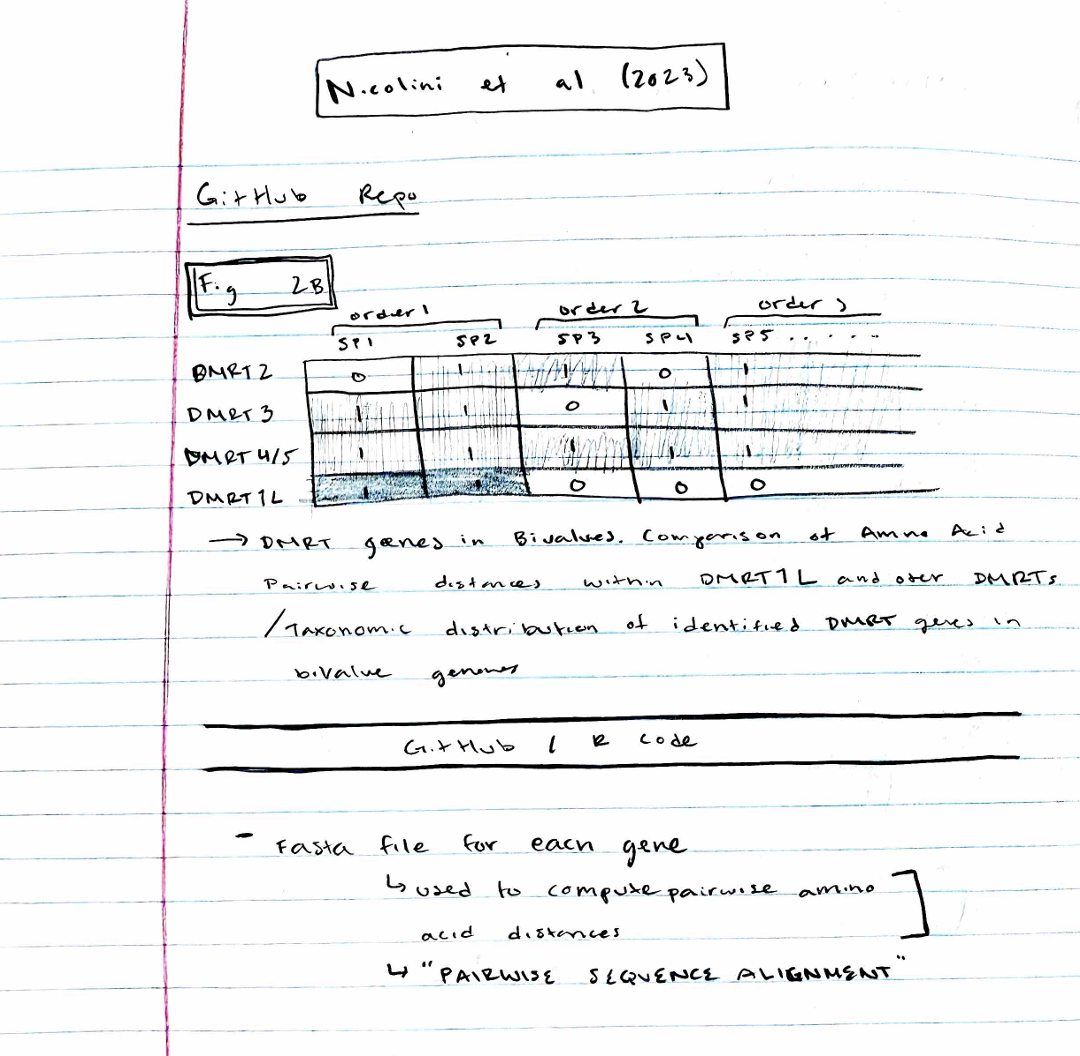 Nicolini et al (2023)
GitHub Repo
Fig 2B
order 1 order 2 order 3
SP1 SP2 SP3 SP4 SP5 . . . . .
DMRT2 0 1 1 0 1
DMRT3 1 1 0 1 1
DMRT4/5 1 1 1 1 1
DMRT1L 1 1 0 0 0
→ DMRT genes in Bivalves. Comparison of Amino Acid
Pairwise distances within DMRT1L and oter DMRTs
/Taxonomic distribution of identified DMRT genes in
bivalve genomes
GitHub / R code
- Fasta file for each gene
↳ used to compute pairwise amino
acid distances
↳ "PAIRWISE SEQUENCE ALIGNMENT"